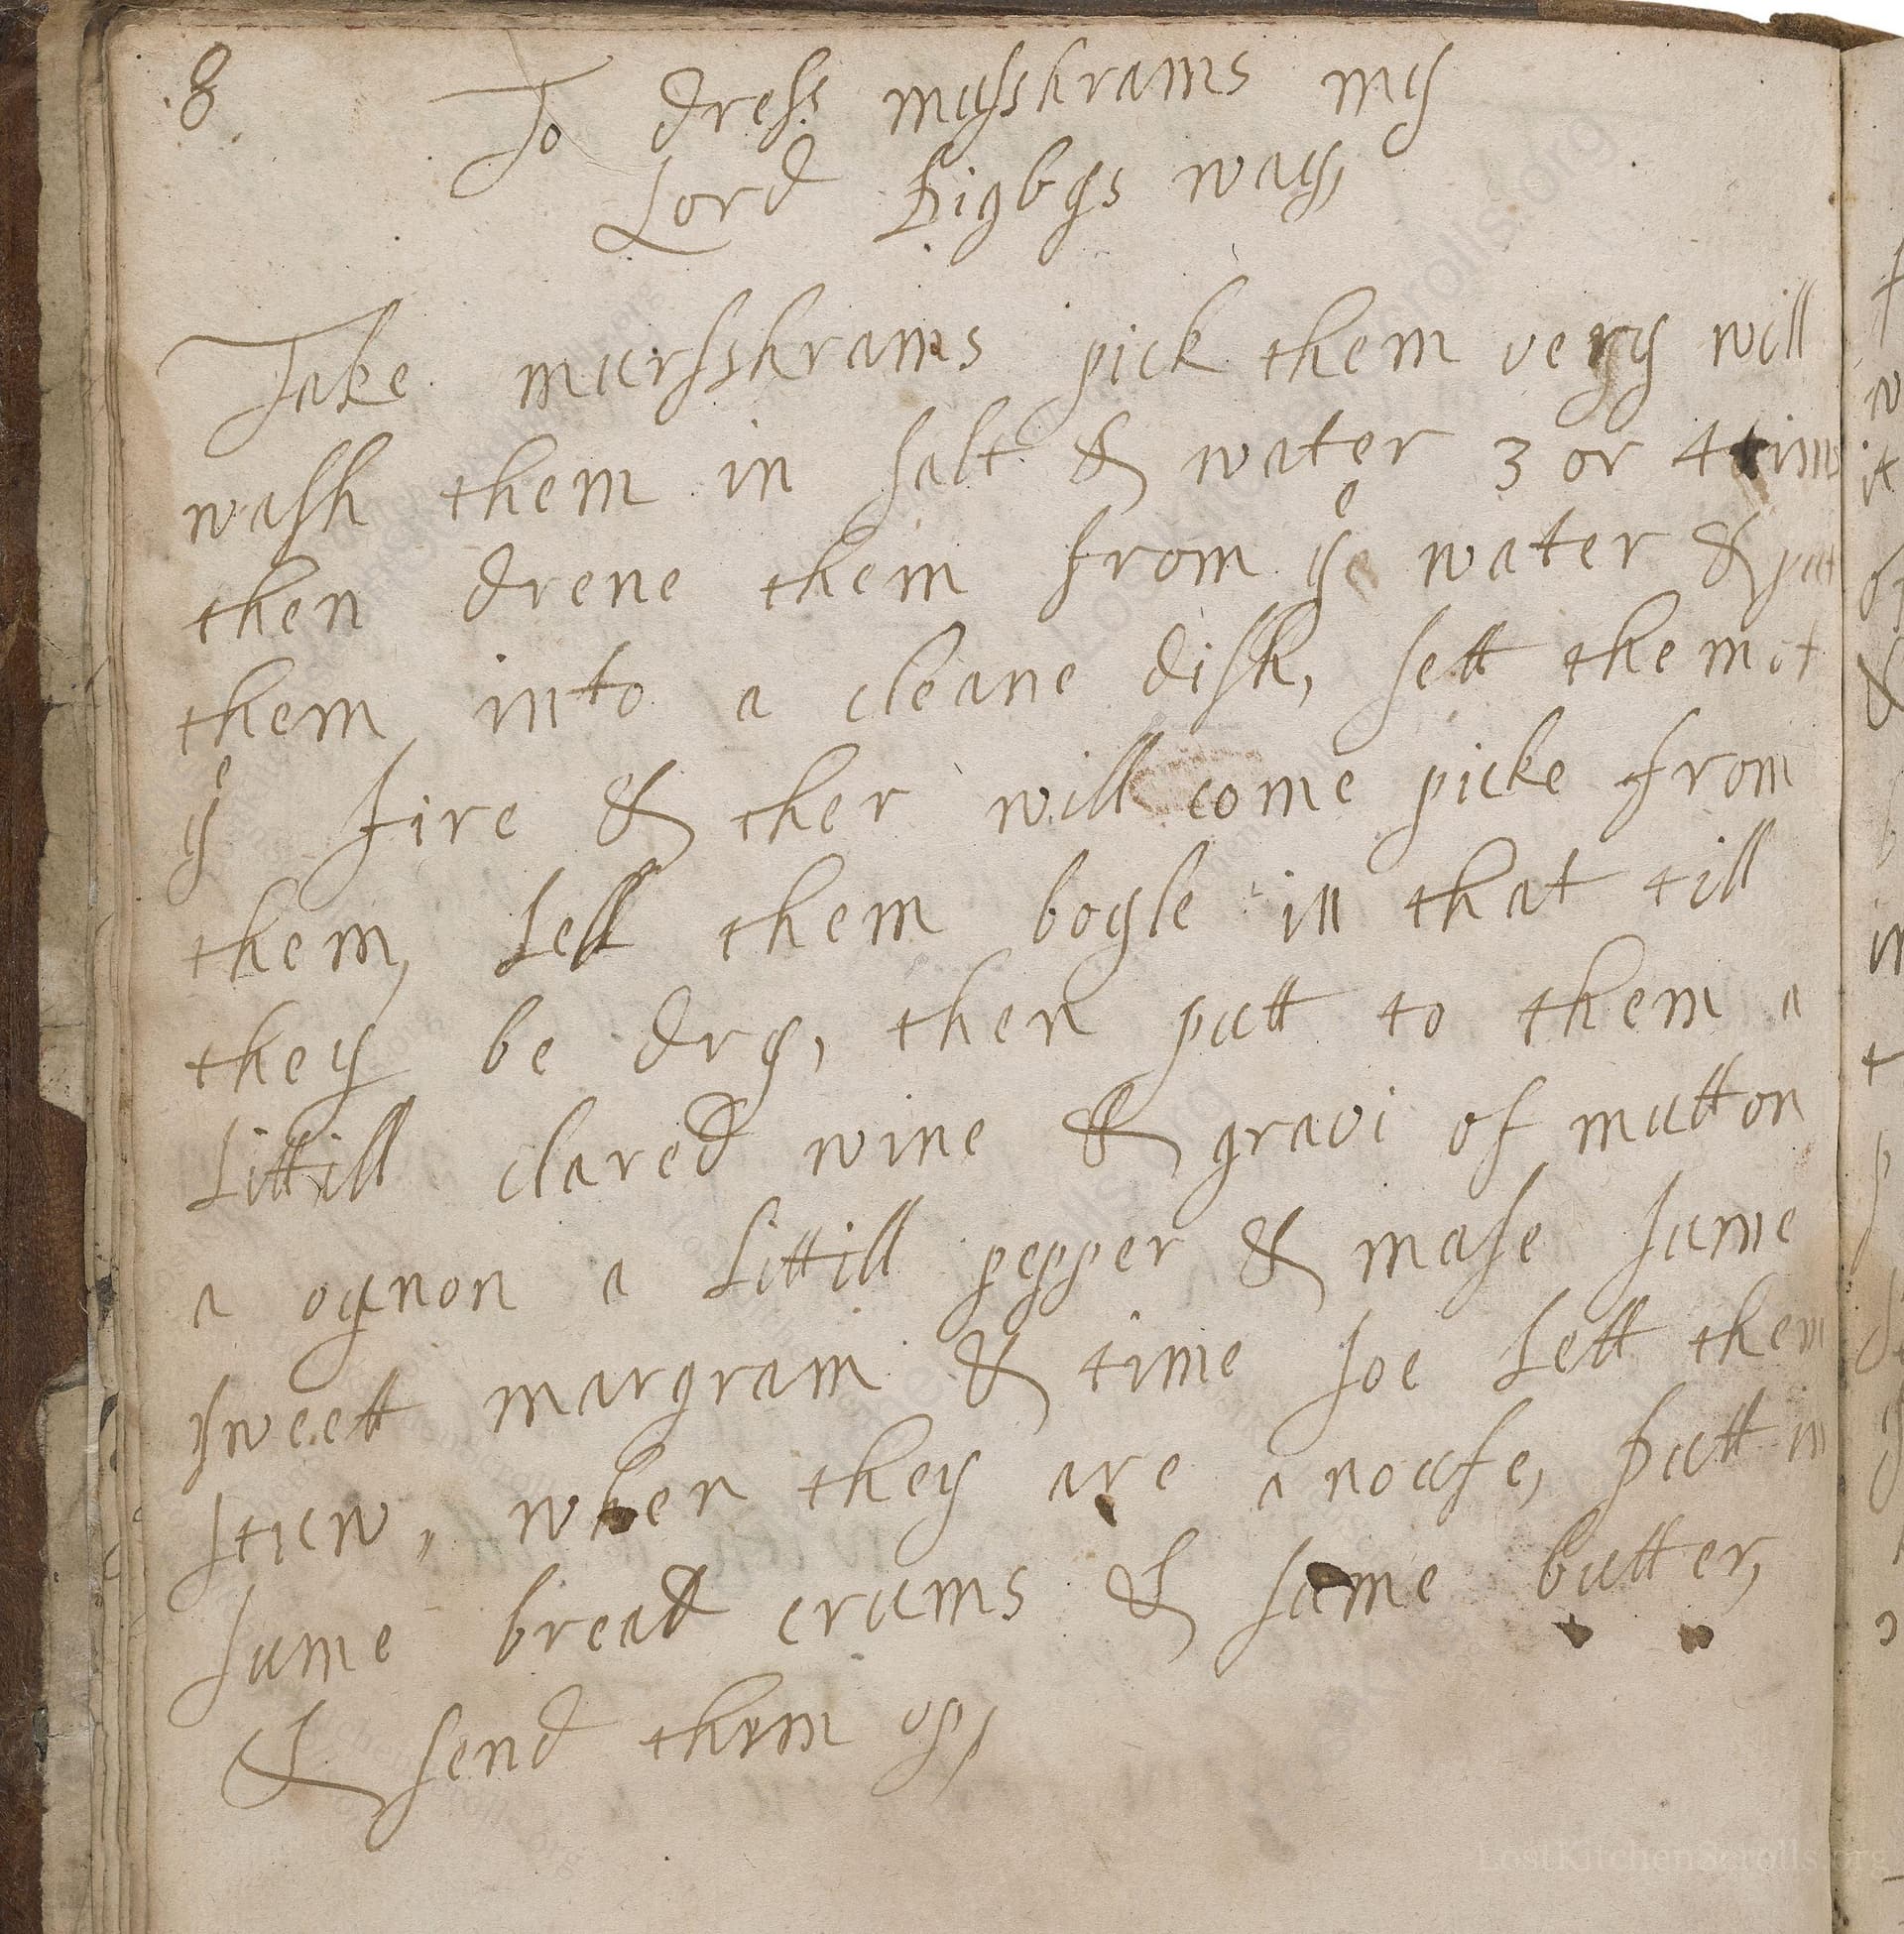 8 To dress musshrams my
Lord Digbys way,
Take mursshrams pick them very will
wash them in salt & water 3 or 4 tim
then drene them from ye water & put
them into a cleane dish, sett them ot
ye fire & ther will come picke from
them, Lett them boyle in that till
they be dry, then putt to them a
Littill clared wine & gravi of mutton
a oynon a Littill pepper & mase sume
sweett margram & time soe Lett them
stuw, when they are anouse, putt in
sume bread crums & sume butter,
& send them op,
LostKitchenScrolls.org